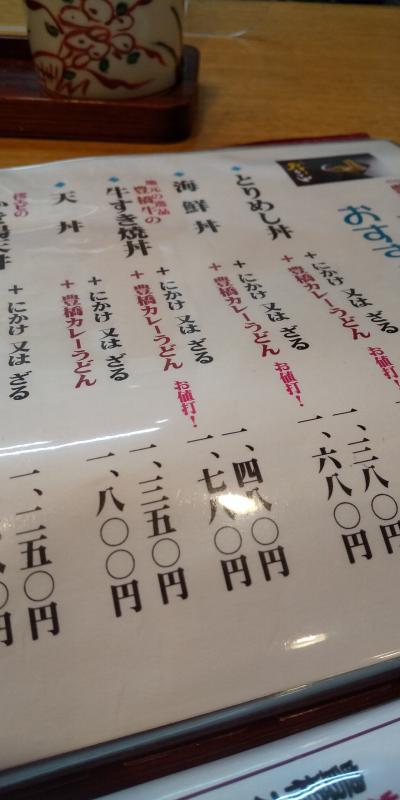 おすす
+ にかけ 又は ざる
+ 豊橋カレーうどん お値打!
とりめし丼
+ にかけ 又は ざる 一、三八〇円
+ 豊橋カレーうどん お値打! 一、六八〇円
海鮮丼
+ にかけ 又は ざる 一、四八〇円
+ 豊橋カレーうどん お値打! 一、七八〇円
地元の逸品
豊橋牛の
牛すき焼丼
+ にかけ 又は ざる 一、三五〇円
+ 豊橋カレーうどん 一、八〇〇円
天丼
+ にかけ 又は ざる 一、二五〇円